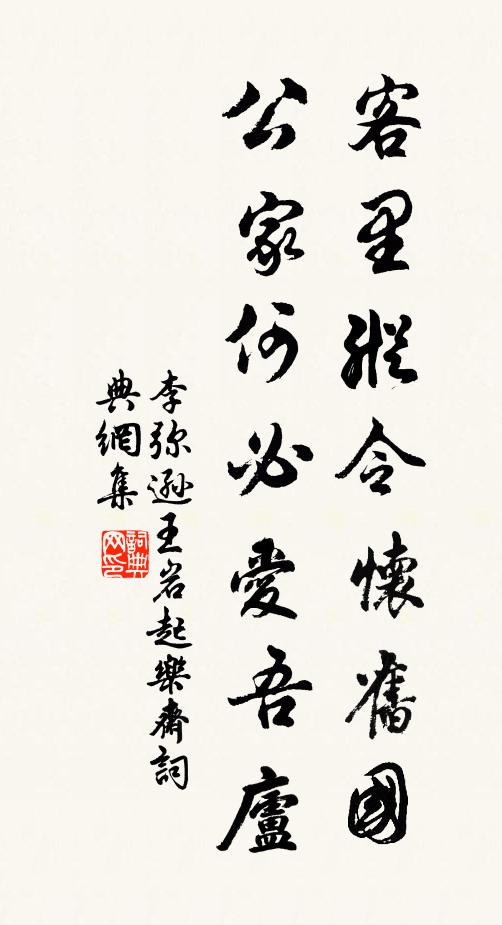 客里縱令懷舊國
公家何必愛吾廬
李弥遜王岩起樂齋詞
典網集
詞典网印